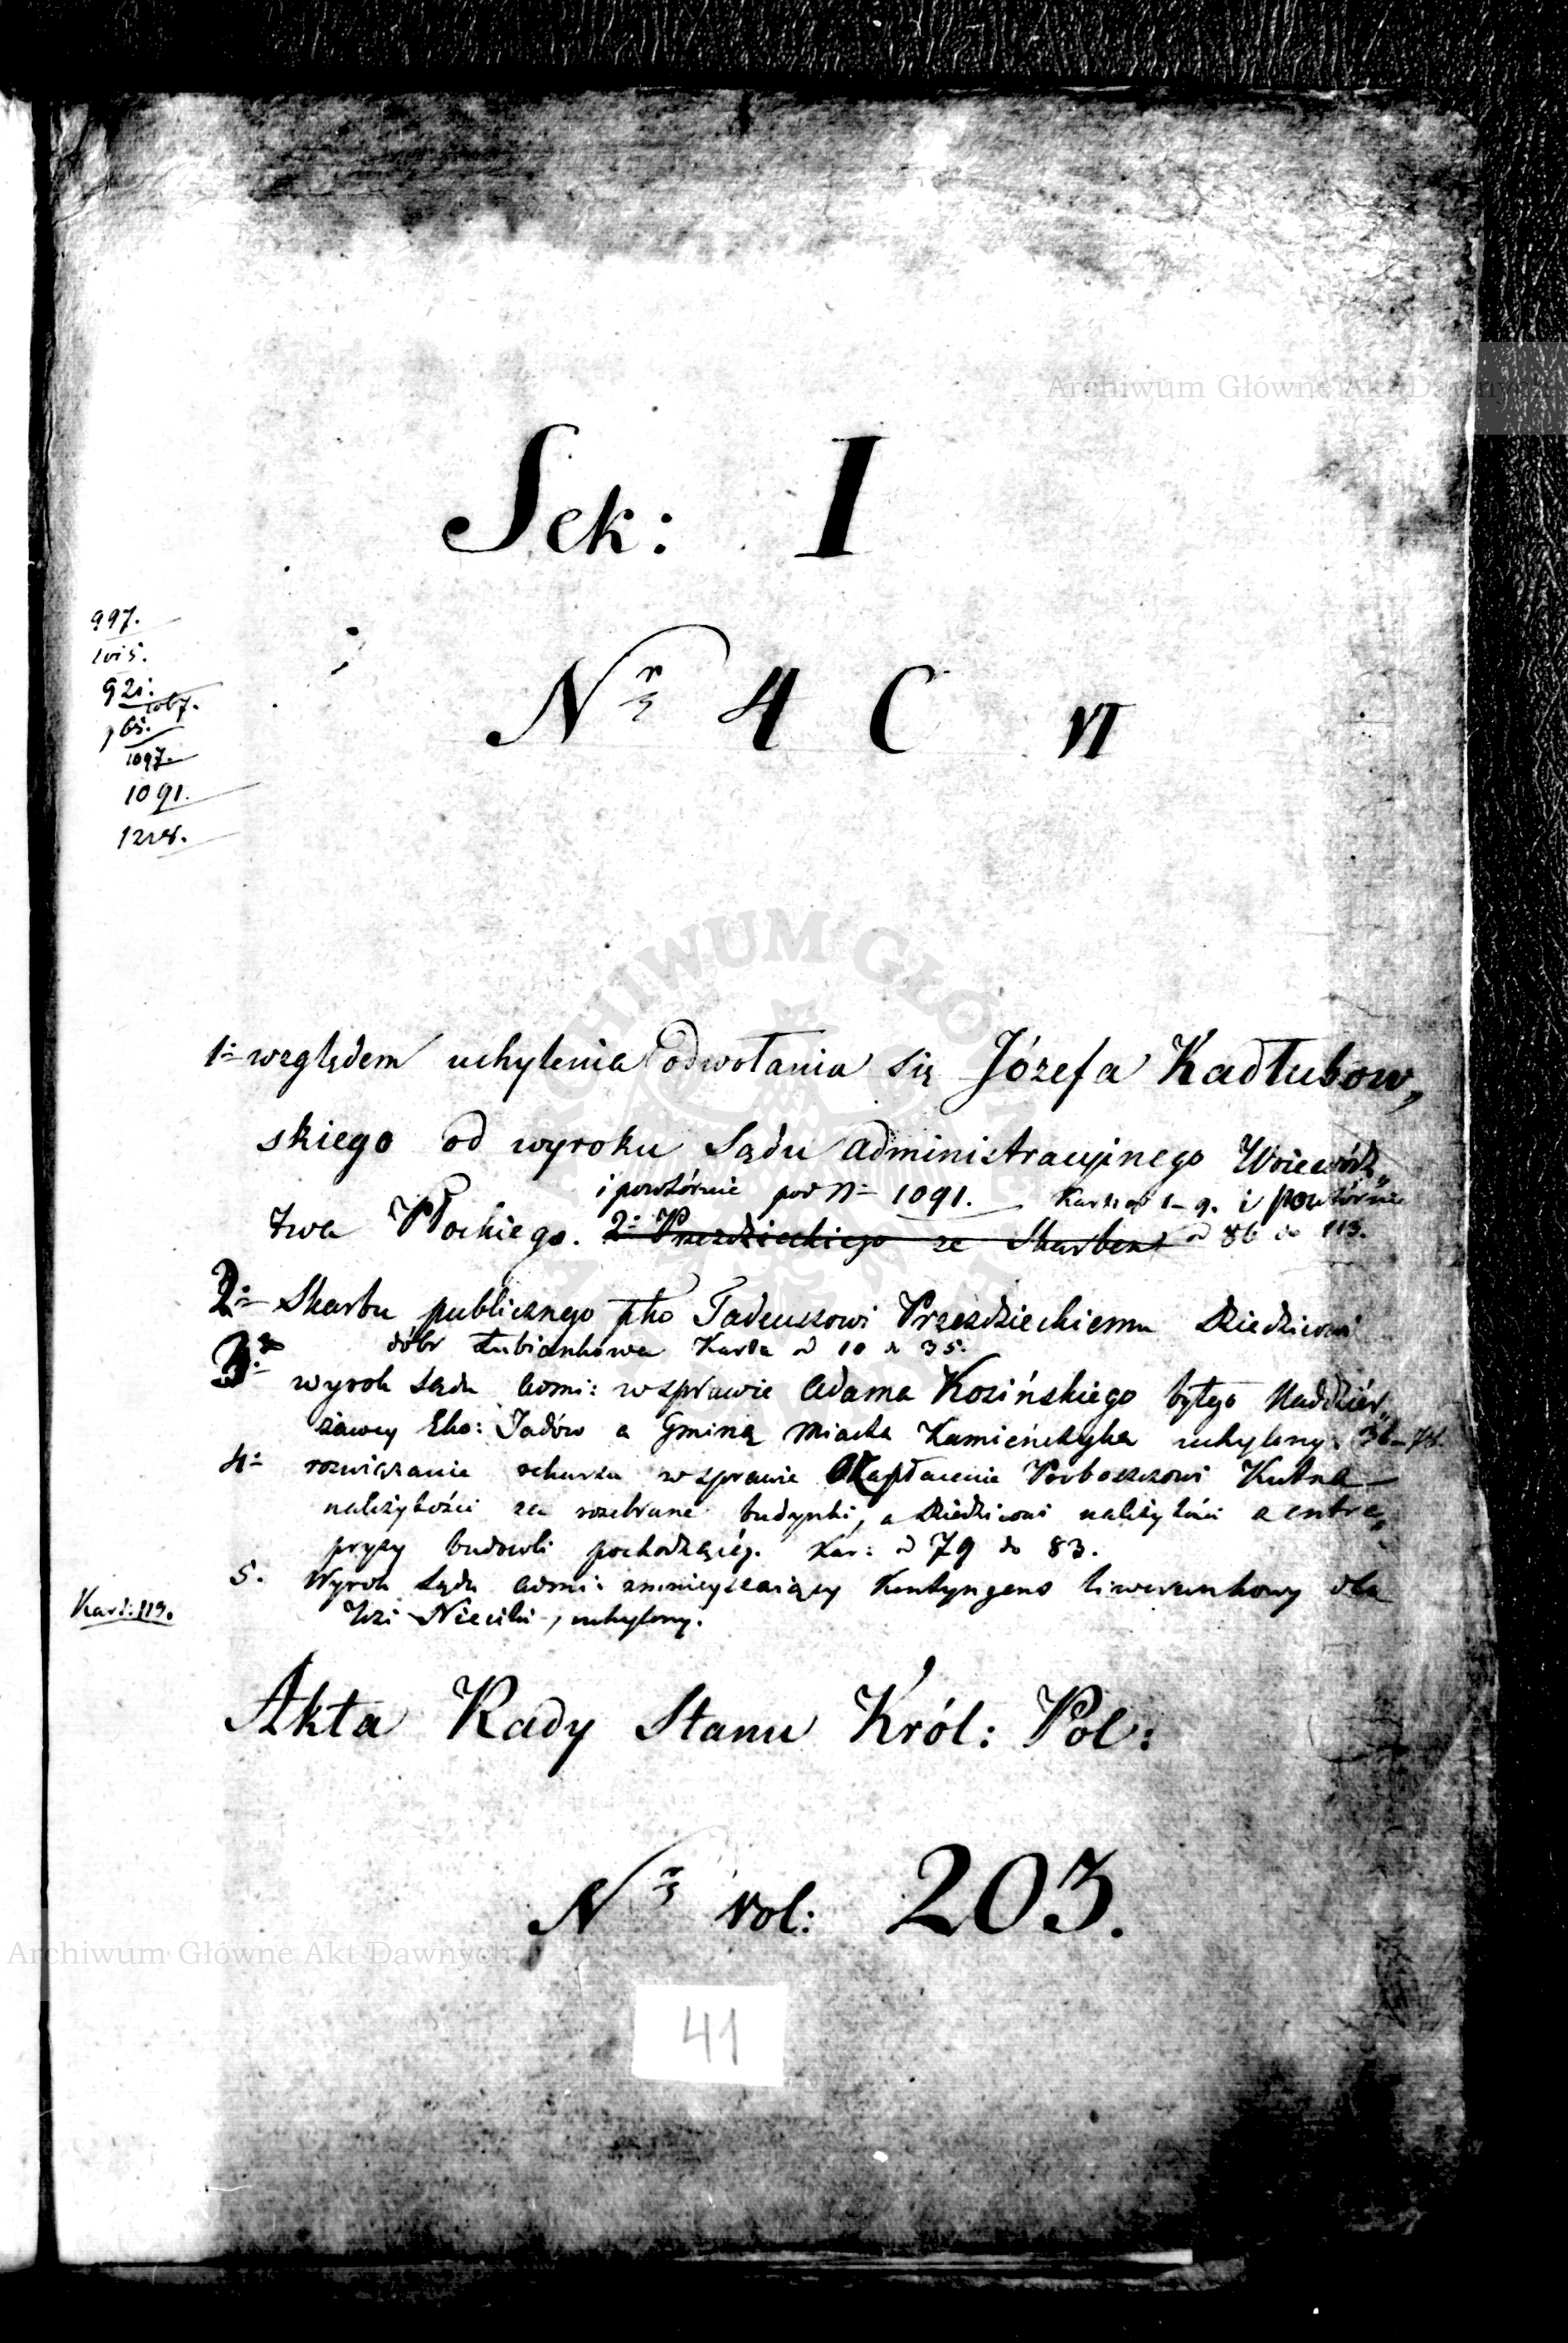 Sek: I
Nr 4 C VI
997.
1015.
921.
1067.
965.
1097.
1091.
1218.
1= względem uchylenia odwołania się Józefa Kadłubow„
skiego od wyroku Sądu administracyjnego Woiewódz„
i powtórnie pod N= 1091. Karta od 1-9. i powtórnie
twa Płockiego. 2= Przezdzieckiego ze Skarbem od 86 do 113.
2= Skarbu publicznego pko Tadeuszowi Przezdzieckiemu Dziedzicowi
dóbr Łubiankowa Karta od 10 do 35.
3= wyrok Sądu admi: w sprawie Adama Kozińskiego byłego Naddzier„
żawcy Eko: Jadów a Gminą Miasta Kamieńczyka uchylony. 36-78.
4= rozwiązanie rekursu w sprawie zapłacenie Proboszczowi Kutna
należytości za rozebrane budynki, a Dziedzicowi należytości z entre„
pryzy budowli pochodzącéy. Kar: od 79 do 83.
5. Wyrok Sądu admi: zmnieyszaiący Kontyngens liwerunkowy dla
Kart: 119.
Wsi Niecieki, uchylony.
Akta Rady Stanu Król: Pol:
Nr vol: 203.
41
Archiwum Główne Akt Dawnych
Archiwum Główne Akt Dawnych